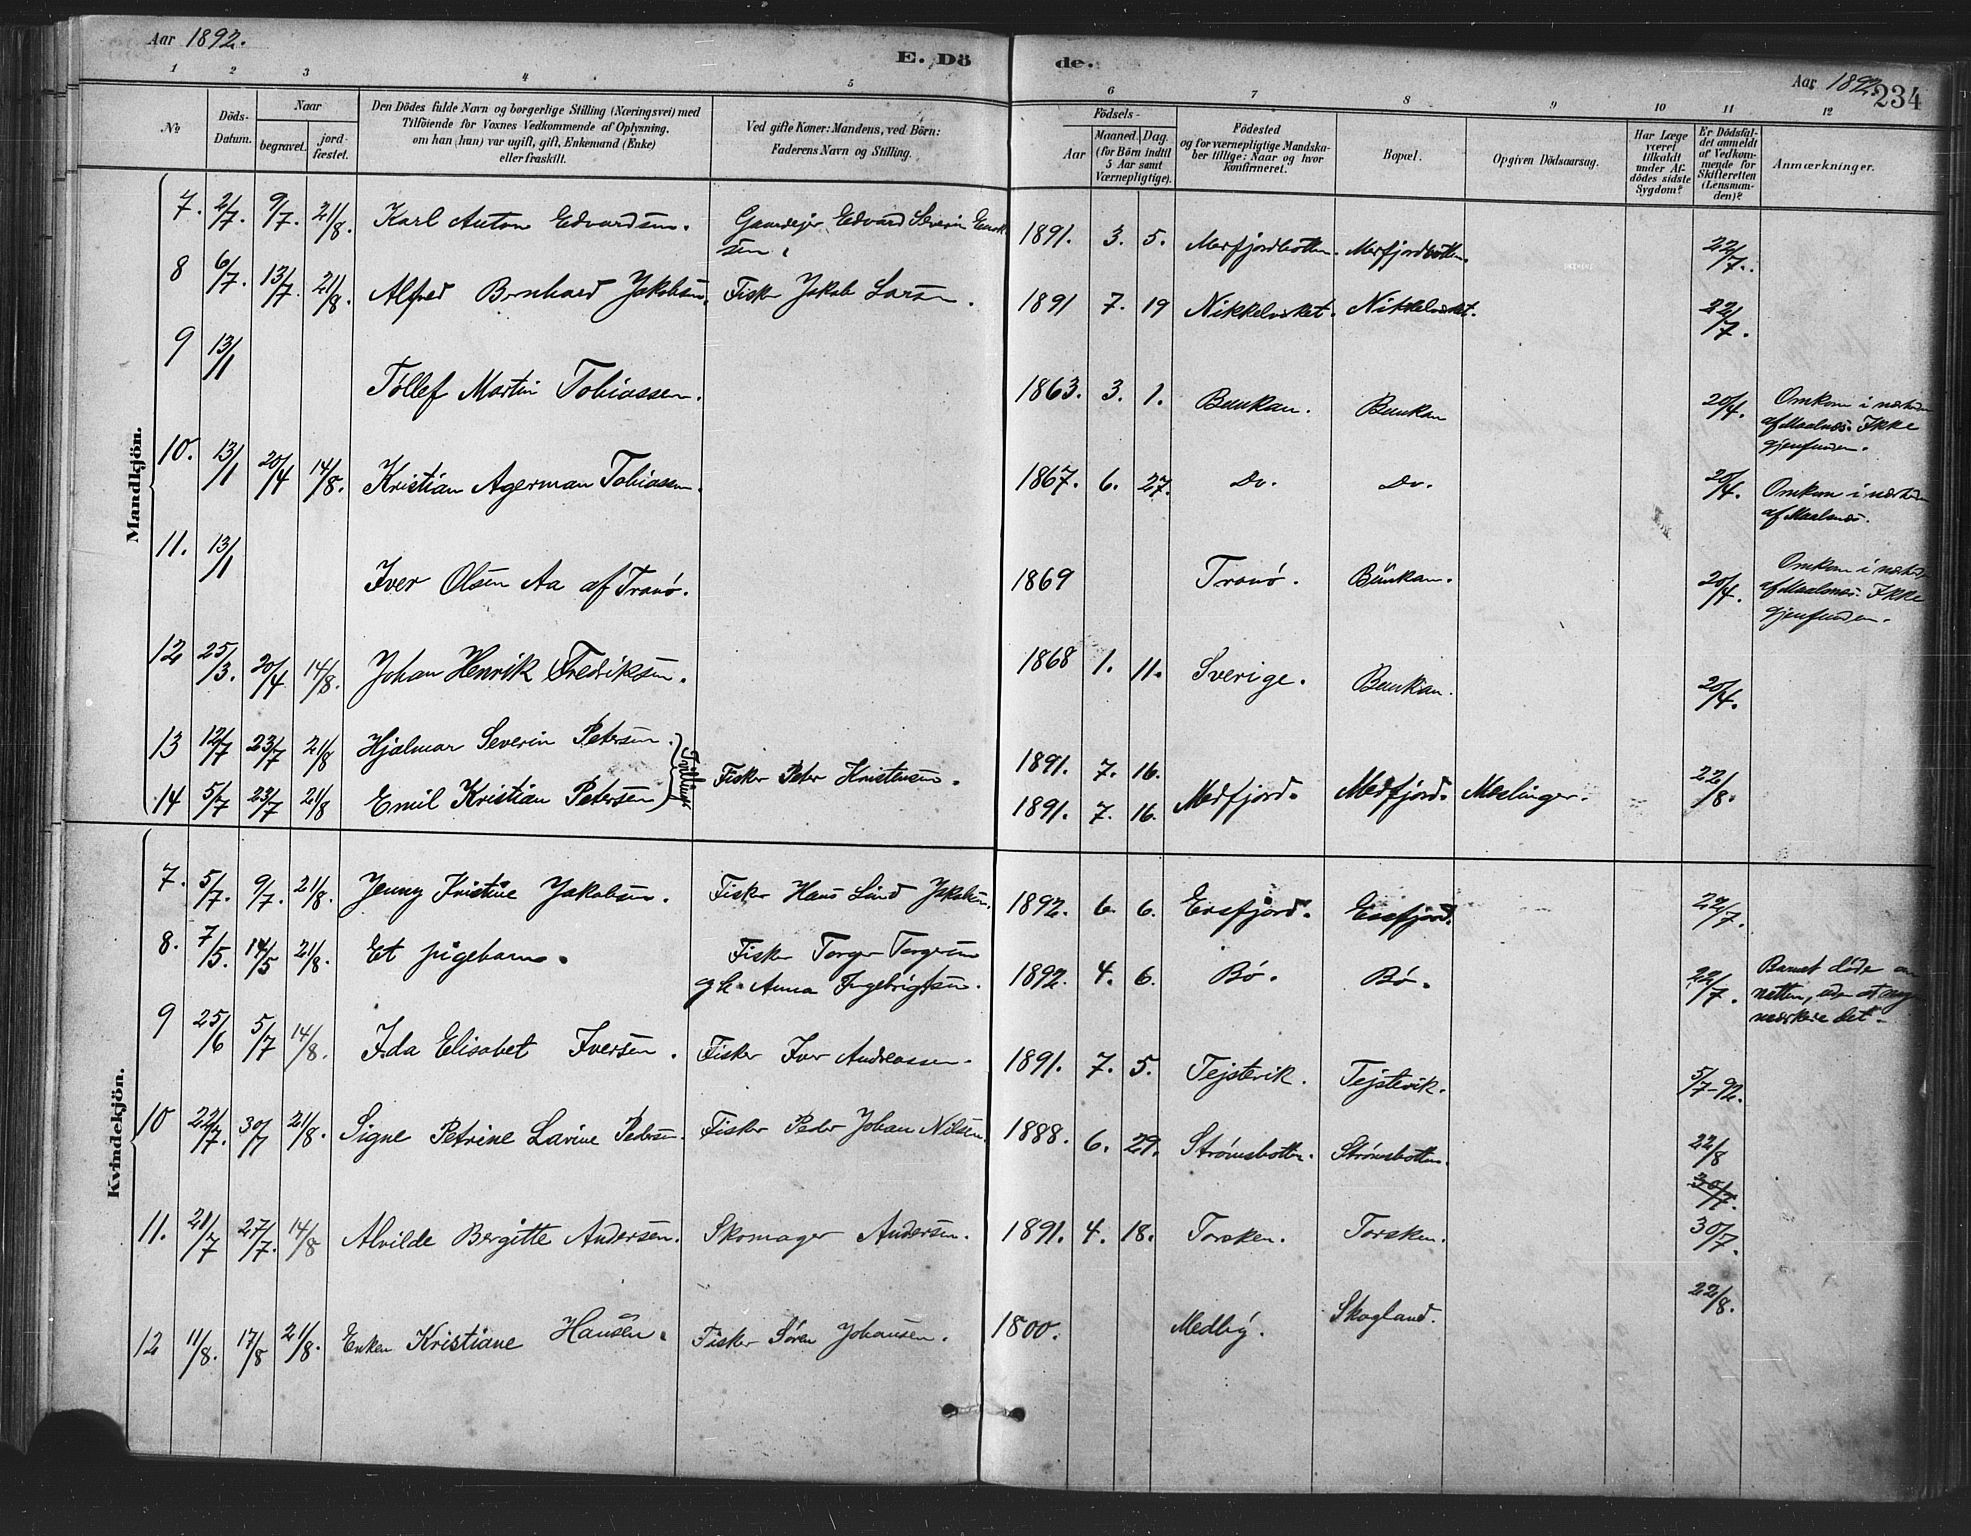 Aar 1892.
E. Dö
de.
Aar 1892.
234
1 2 3 4 5 6 7 8 9 10 11 12
No
Döds-
Datum.
Naar
begravet.
jord-
fæstet.
Den Dödes fulde Navn og borgerlige Stilling (Næringsvei) med
Tilföiende for Voxnes Vedkommende af Oplysning,
om han (hun) var ugift, gift, Enkemand (Enke)
eller fraskilt.
Ved gifte Koner: Mandens, ved Börn:
Faderens Navn og Stilling.
Födsels-
Aar
Maaned. Dag.
(for Börn indtil
5 Aar samt
Værnepligtige).
Födested
og for værnepligtige Mandska-
ber tillige: Naar og hvor
konfirmeret.
Bopæl.
Opgiven Dödsaarsag.
Har Læge
været
tilkaldt
under Af-
dödes sidste
Sygdom?
Er Dödsfal-
det anmeldt
af Vedkom-
mende for
Skifteretten
(Lensman-
den)?
Anmærkninger.
Mandkjön.
7. 2/7. 9/7. 21/8. Karl Anton Edvardsen. Gaardejer Edvard Severin
sen. 1891. 3. 5. Mefjordbotten. Mefjordbotten. 22/7.
8 6/7. 13/7 21/8. Alfred Bernhard Jakobsen. Fisker Jakob Larsen. 1891 7. 19 Nikkelviket. Nikkelviket. 22/7.
9 13/1 Tollef Martin Tobiassen. 1863. 3. 1. Bunkan. Bunkan 20/4. Omkom i nærheden
af Maalnes. Ikke
gjenfunden.
10. 13/1 20/4 14/8. Kristian Agerman Tobiassen. 1867. 6. 27. Do. Do. 20/4. Omkom i nærheden
af Maalnes.
11. 13/1 Iver Olsen Aa af Tranø. 1869 Tranø. Bunkan. 20/4. Omkom i nærheden
af Maalnes. Ikke
gjenfunden.
12 25/3. 20/4 14/8. Johan Henrik Fredriksen. 1868 1. 11. Sverige. Bunkan. 20/4.
13 12/7 23/7 21/8 Hjalmar Severin Petersen. 1891. 7. 16.
Tvillinger Fisker Peter Kristensen. Medfjord. Medfjord. Meslinger. 22/8.
14 5/7 23/7 21/8 Emil Kristian Petersen 1891. 7. 16.
Kvindekjön.
7. 5/7. 9/7. 21/8. Jenny Kristine Jakobsen. Fisker Hans Lind Jakobsen. 1892. 6. 6. Ersfjord. Ersfjord. 22/7.
8. 7/5. 14/5 21/8. Et pigebarn. Fisker Torger Torgersen
gh. Anna Ingebrigtsen. 1892. 4. 6. Bø. Bø. 22/7. Barnet døde om
natten, uden at nogen
mærkede det.
9 25/6 5/7 14/8. Ida Elisabet Iversen. Fisker Iver Andreassen. 1891. 7. 5. Tejstevik. Tejstevik. 5/7-92.
10 22/7. 30/7 21/8. Signe Petrine Lavine Pedersen. Fisker Peder Johan Nilsen. 1888. 6. 29. Strømsbotten. Strømsbotten. 22/8
30/7.
11. 21/7 27/7. 14/8 Alvilde Bergitte Andersen. Skomager Andersen. 1891. 4. 18. Torsken. Torsken. 30/7.
12 11/8. 17/8 21/8. Enken Kristiane Hansen. Fisker Søren Johansen. 1800. Medby. Skogland. 22/8.